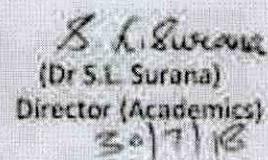 S. L. Surana
(Dr S.L. Surana)
Director (Academics)
30/7/18